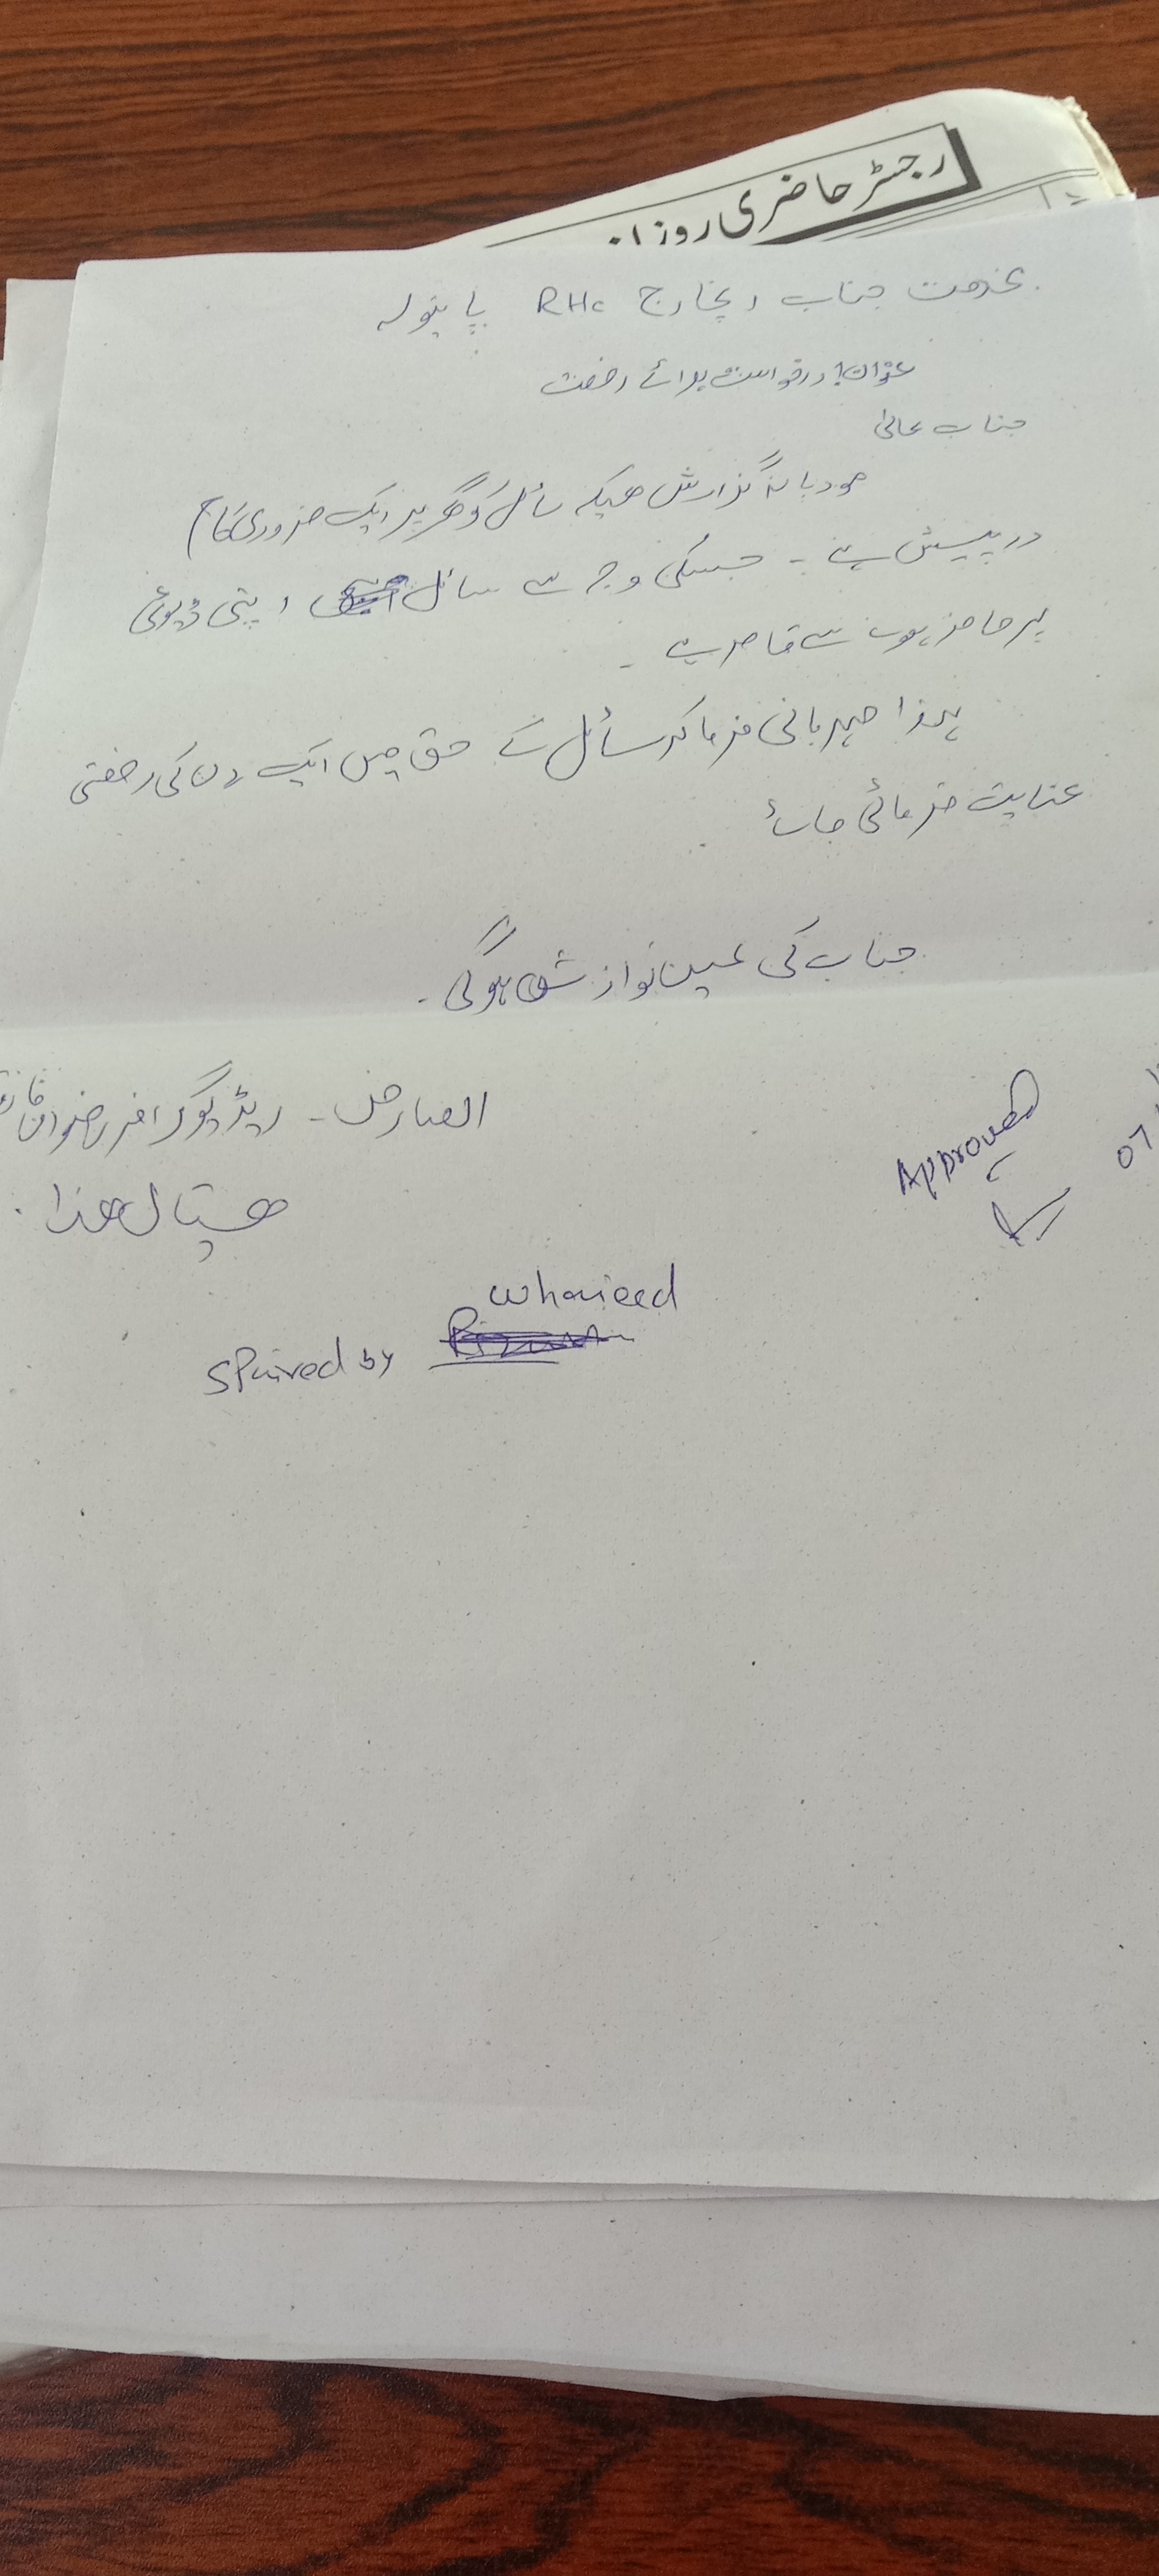 رجسٹر حاضری روزا
بخدمت جناب انچارج RHc پاہٹولہ
عنوان! درخواست برائے رخصت
جناب عالی
مودبانہ گزارش ھیکہ سائل کو گھر پر ایک ضروری کام
درپیش ہے - جسکی وجہ سے سائل اپنی ڈیوٹی
پر حاضر ہونے سے قاصر ہے -
لہذا مہربانی فرما کر سائل کے حق میں ایک دن کی رخصتی
عنایت فرمائی جائے
جناب کی عین نوازش ہوگی -
العارض - ریڈیوگرافر رضوان
ھسپتال ھذا
Approved
07
whaieed
SPaired by